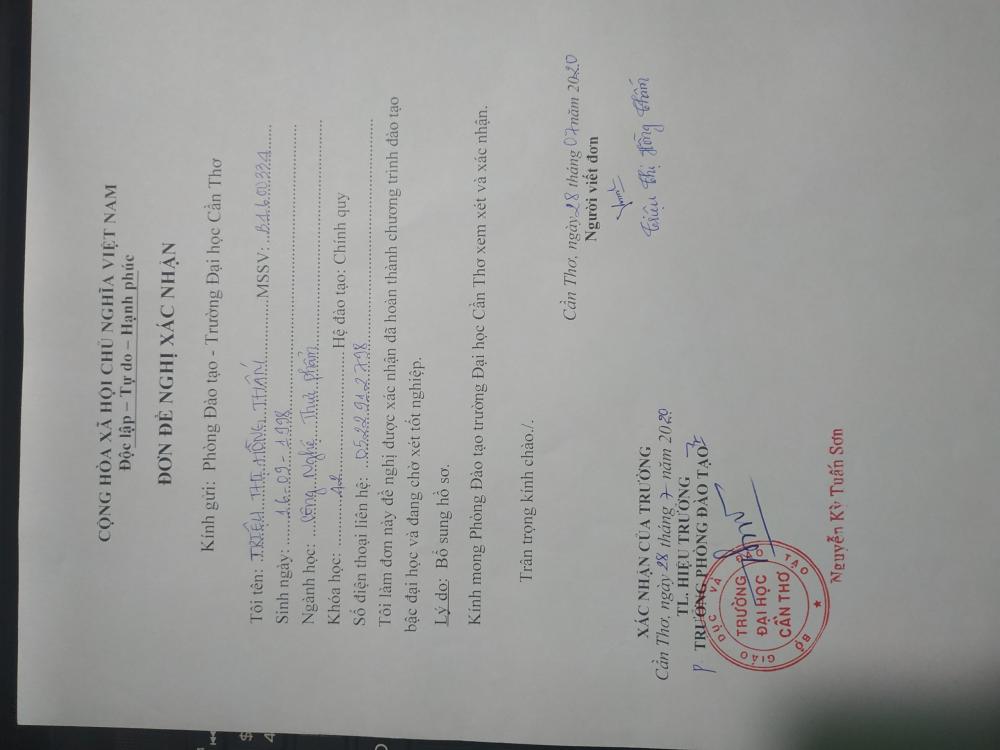 CỘNG HÒA XÃ HỘI CHỦ NGHĨA VIỆT NAM
Độc lập – Tự do – Hạnh phúc
ĐƠN ĐỀ NGHỊ XÁC NHẬN
Kính gửi: Phòng Đào tạo - Trường Đại học Cần Thơ
Tôi tên: TRIỆU THỊ HỒNG THẮM MSSV: B1600334
Sinh ngày: 16-09-1998
Ngành học: Công Nghệ Thực phẩm
Khóa học: 42 Hệ đào tạo: Chính quy
Số điện thoại liên hệ: 0522912798
Tôi làm đơn này đề nghị được xác nhận đã hoàn thành chương trình đào tạo
bậc đại học và đang chờ xét tốt nghiệp.
Lý do: Bổ sung hồ sơ.
Kính mong Phòng Đào tạo trường Đại học Cần Thơ xem xét và xác nhận.
Trân trọng kính chào./.
Cần Thơ, ngày 28 tháng 07 năm 2020
Người viết đơn
Triệu Thị Hồng Thắm
XÁC NHẬN CỦA TRƯỜNG
Cần Thơ, ngày 28 tháng 7 năm 2020
TL. HIỆU TRƯỞNG
P. TRƯỞNG PHÒNG ĐÀO TẠO
BỘ GIÁO DỤC VÀ ĐÀO TẠO
TRƯỜNG
ĐẠI HỌC
CẦN THƠ
Nguyễn Kỳ Tuấn Sơn
$
4